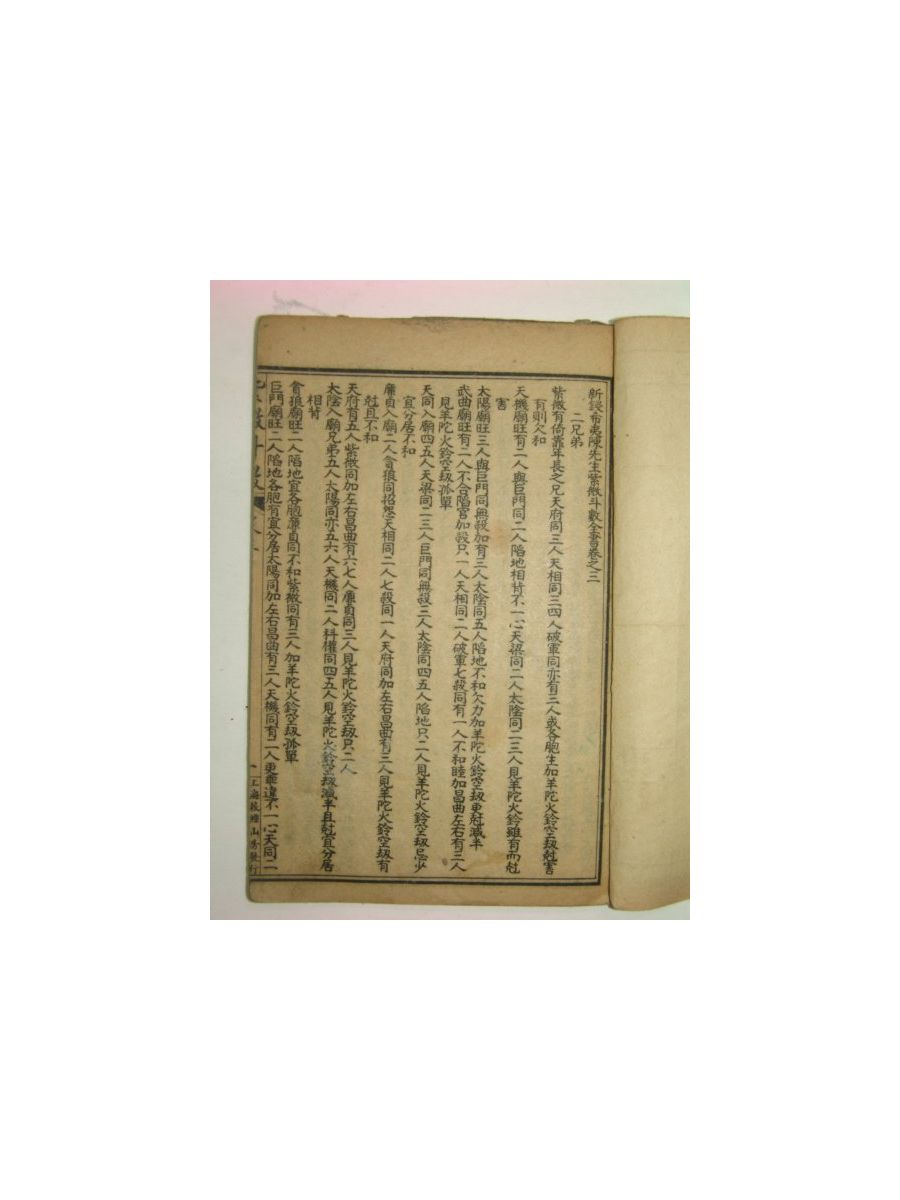 新鋟希夷陳先生紫微斗數全書卷之三
二兄弟
紫微有倚靠年長之兄天府同三人天相同三四人破軍同亦有三人或各胞生加羊陀火鈴空刼尅害
有則欠和
天機廟旺有二人與巨門同二人陷地相背不一心天梁同二人太陰同二三人見羊陀火鈴雖有而尅
害
太陽廟旺三人與巨門同無殺加有三人太陰同五人陷地不和欠力加羊陀火鈴空刼更尅減半
武曲廟旺有二人不合陷宮加殺只一人天相同二人破軍七殺同有一人不和睦加昌曲左右有三人
見羊陀火鈴空刼孤單
天同入廟四五人天梁同二三人巨門同無殺三人太陰同四五人陷地只二人見羊陀火鈴空刼忌少
宜分居不和
廉貞入廟二人貪狼同招怨天相同二人七殺同一人天府同加左右昌曲有三人見羊陀火鈴空刼有
尅且不和
天府有五人紫微同加左右昌曲有六七人廉貞同三人見羊陀火鈴空刼只二人
太陰入廟兄弟五人太陽同亦五六人天機同二人科權同四五人見羊陀火鈴空刼減半且尅宜分居
相背
貪狼廟旺二人陷地宜各胞廉貞同不和紫微同有三人加羊陀火鈴空刼孤單
巨門廟旺二人陷地各胞有宜分居太陽同加左右昌曲有三人天機同有二人更乖違不一心天同二
一
上海 山房發行